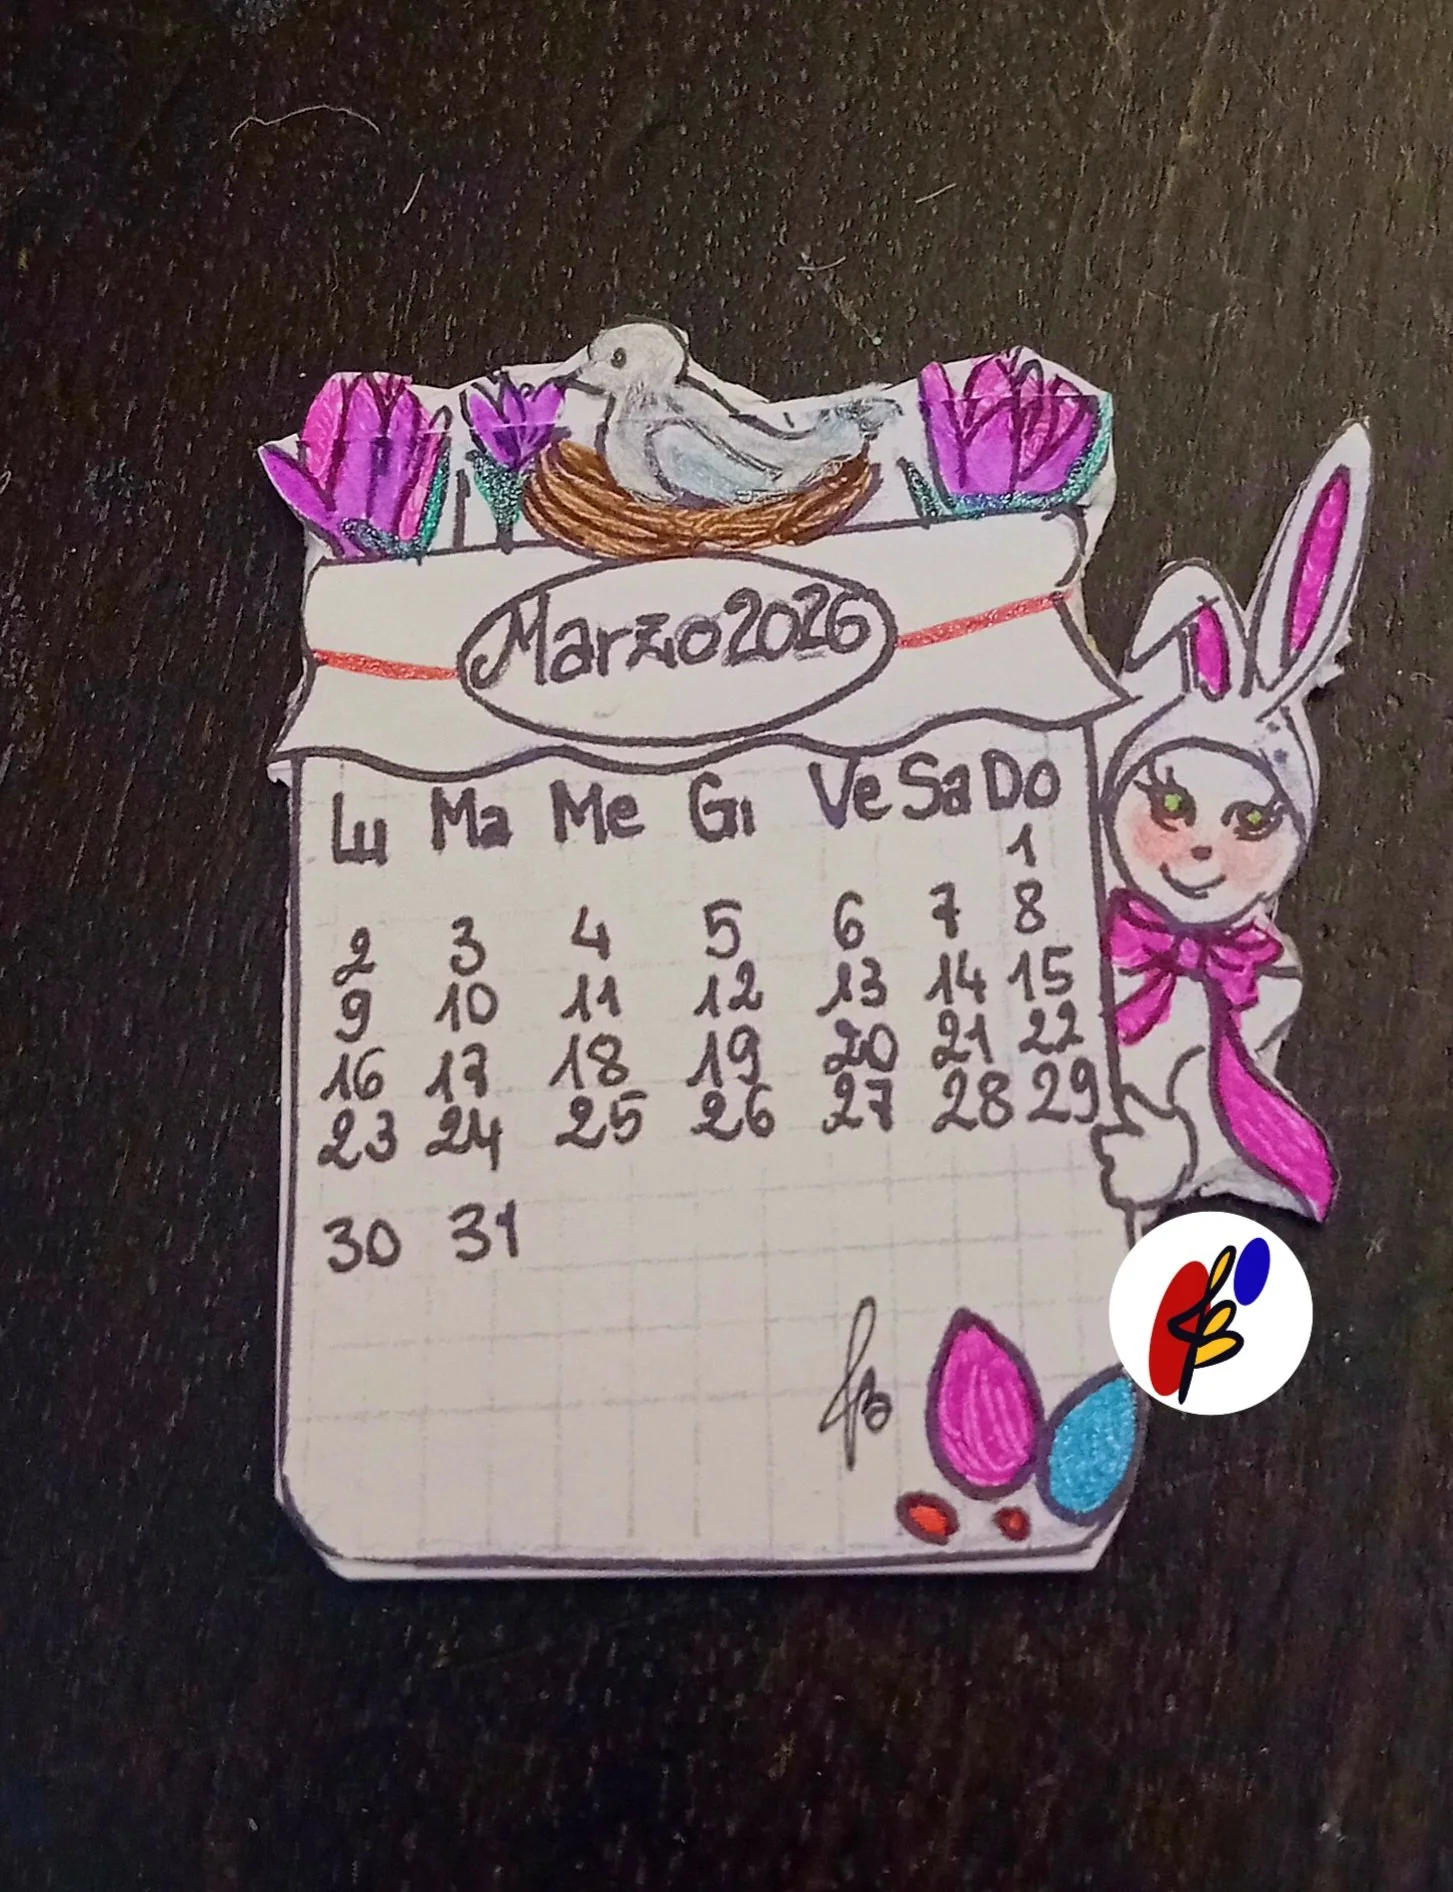 Marzo 2026
Lu Ma Me Gi Ve Sa Do
1
2 3 4 5 6 7 8
9 10 11 12 13 14 15
16 17 18 19 20 21 22
23 24 25 26 27 28 29
30 31